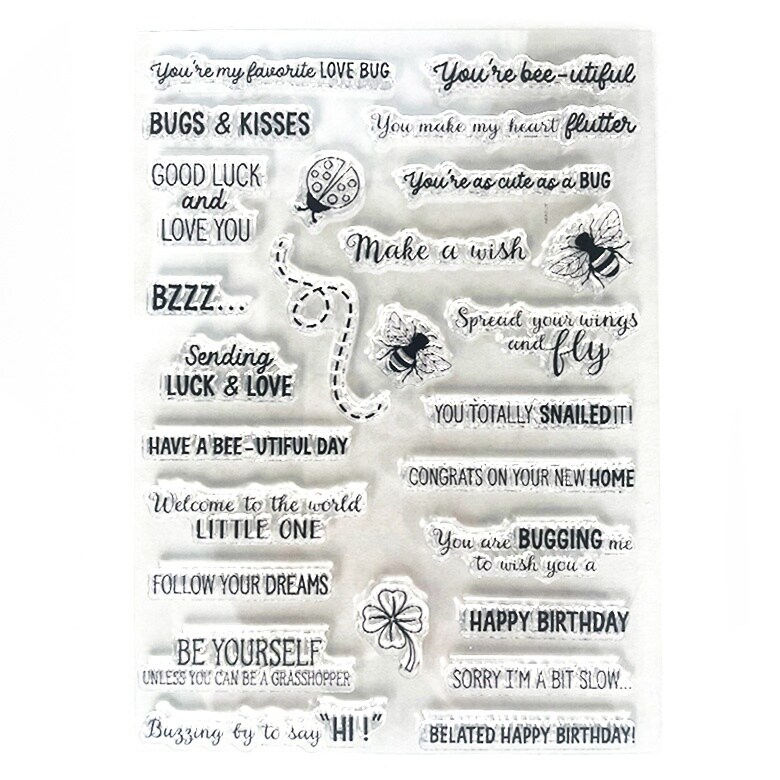 You're my favorite LOVE BUG
You're bee-utiful
BUGS & KISSES
You make my heart flutter
GOOD LUCK
and
LOVE YOU
You're as cute as a BUG
Make a wish
BZZZ...
Spread your wings
and fly
Sending
LUCK & LOVE
YOU TOTALLY SNAILED IT!
HAVE A BEE-UTIFUL DAY
CONGRATS ON YOUR NEW HOME
Welcome to the world
LITTLE ONE
You are BUGGING me
to wish you a
FOLLOW YOUR DREAMS
HAPPY BIRTHDAY
BE YOURSELF
UNLESS YOU CAN BE A GRASSHOPPER
SORRY I'M A BIT SLOW...
Buzzing by to say "HI!"
BELATED HAPPY BIRTHDAY!